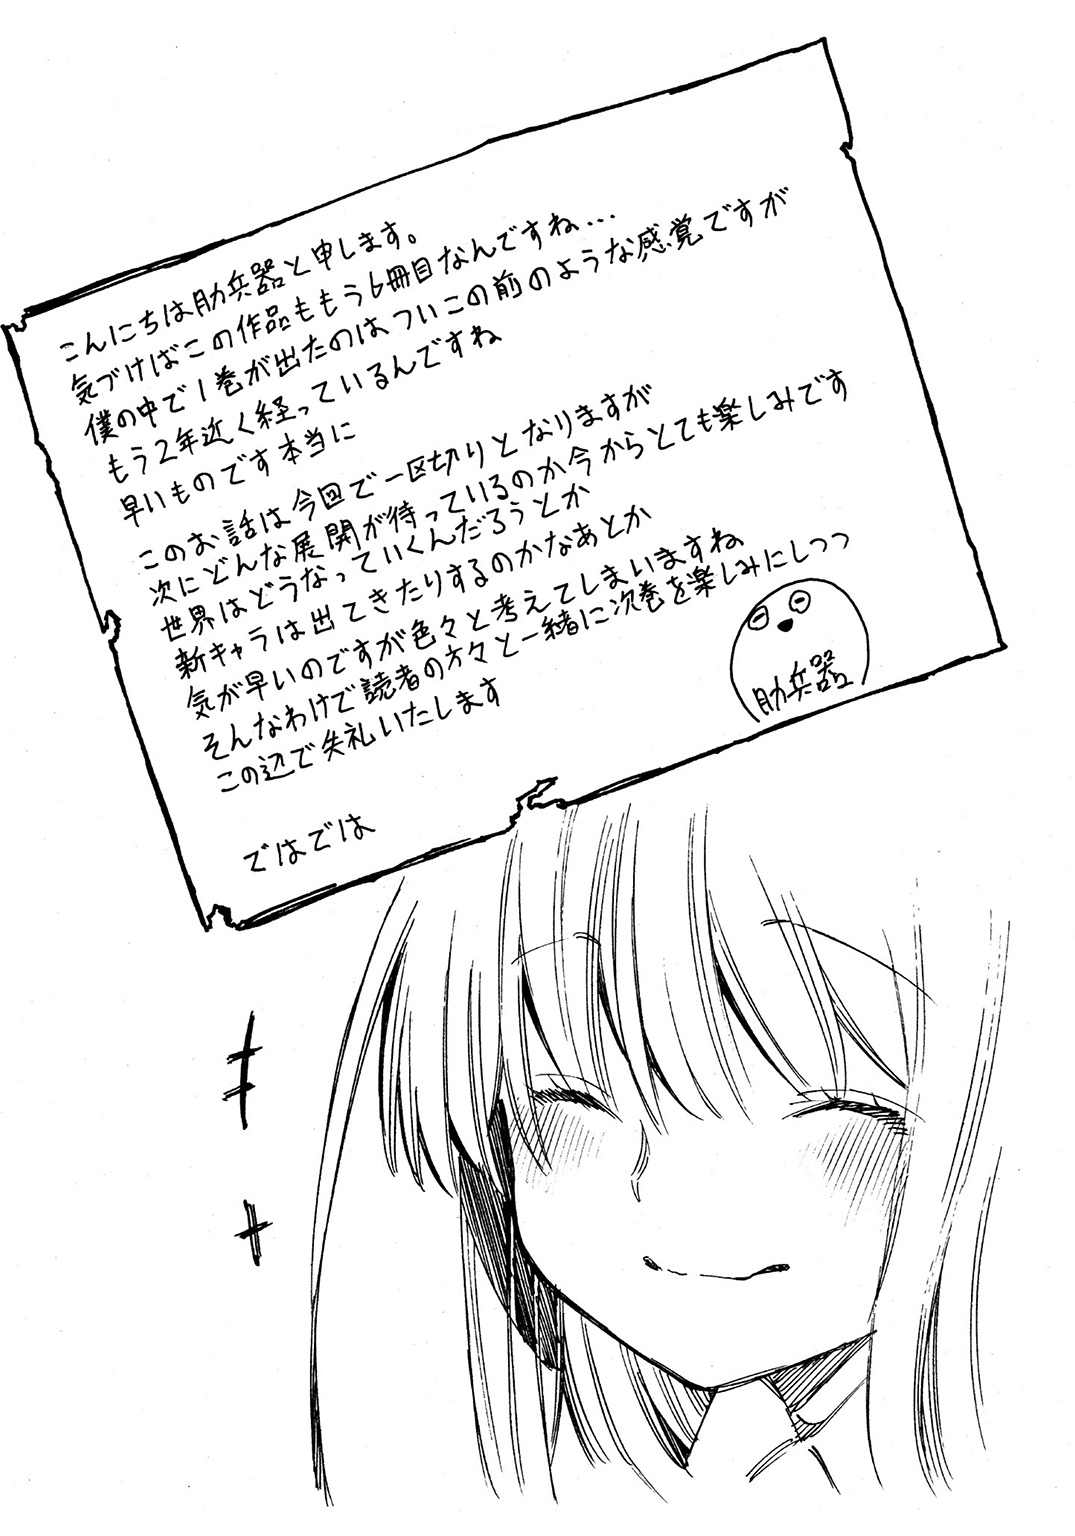 こんにちは肋兵器と申します。
気づけばこの作品ももう6冊目なんですね…
僕の中で1巻が出たのはついこの前のような感覚ですが
もう2年近く経っているんですね
早いものです本当に
このお話は今回で一区切りとなりますが
次にどんな展開が待っているのか今からとても楽しみです
世界はどうなっていくんだろうとか
新キャラは出てきたりするのかなあとか
気が早いのですが色々と考えてしまいますね
そんなわけで読者の方々と一緒に次巻を楽しみにしつつ
この辺で失礼いたします
ではでは
肋兵器